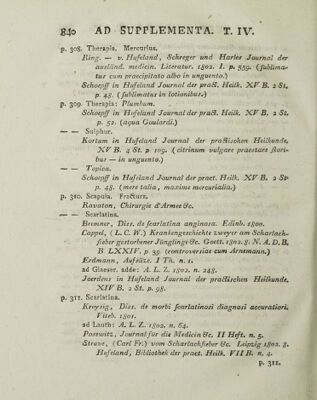 840 AD SUPPLEMENTA. T. IV.
p. 308. Therapia. Mercurius.
Ring. — v. Hufeland, Schreger und Harles Journal der
ausländ. medicin. Literatur. 1802. I. p. 559. (sublima-
tus cum praecipitato albo in unguento.)
Schoepff in Hufeland Journal der pract. Heilk. XV B. 2 St.
p. 48. (sublimatus in lotionibus.)
p. 309. Therapia: Plumbum.
Schoepff in Hufeland Journal der pract. Heilk. XV B. 2 St.
p. 52. (aqua Goulardi.)
— — Sulphur.
Kortum in Hufeland Journal der practischen Heilkunde.
XV B. 4 St. p. 109. (citrinum vulgare praestare flori-
bus — in unguento.)
— — Topica.
Schoepff in Hufeland Journal der pract. Heilk. XV B. 2 St.
p. 48. (mere talia, maxime mercurialia.)
p. 310. Scapula. Fractura.
Ravaton, Chirurgie d'Armes &c.
— — Scarlatina.
Bremner, Diss. de scarlatina anginosa. Edinb. 1800.
Cappel, (L. C. W.) Krankengeschichte zweyer am Scharlach-
fieber gestorbener Jünglinge &c. Goett. 1802. 8. N. A. D. B.
B LXXIV. p. 39. (controversias cum Arnemann.)
Erdmann, Aufsätze. I Th. n. 1.
ad Glaeser. adde: A. L. Z. 1802. n. 248.
Joerdens in Hufeland Journal der practischen Heilkunde.
XIV B. 2 St. p. 98.
p. 311. Scarlatina.
Kreysig, Diss. de morbi scarlatinosi diagnosi accuratiori.
Viteb. 1801.
ad Lauth: A. L. Z. 1802. n. 64.
Posewitz, Journal für die Medicin &c. II Heft. n. 5.
Struve, (Carl Fr.) vom Scharlachfieber &c. Leipzig 1802. 8.
Hufeland, Bibliothek der pract. Heilk. VII B. n. 4.
p. 311.